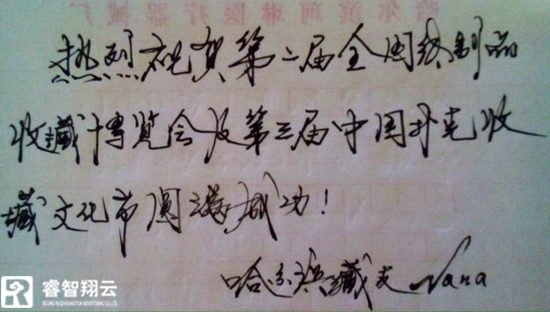 哈尔滨珂琳医疗器械厂
热烈祝贺第二届全国纸制品
收藏博览会及第三届中国扑克收
藏文化节圆满成功!
哈尔滨藏友 Nana
睿智翔云